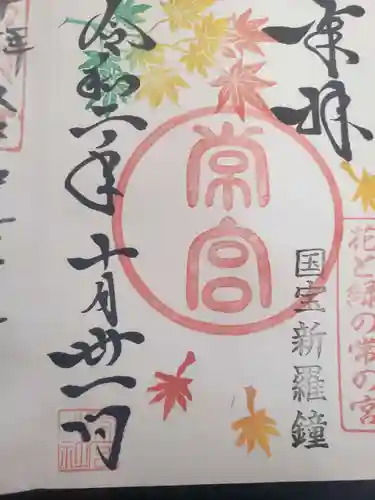 奉拝
花と緑の常の宮
国宝新羅鐘
常宮
令和六年十月卅一日